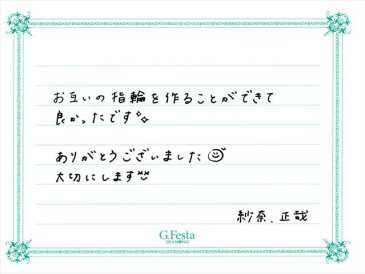 お互いの指輪を作ることができて
良かったです✨
ありがとうございました☺
大切にします
紗奈、正哉
G.Festa
DIAMOND